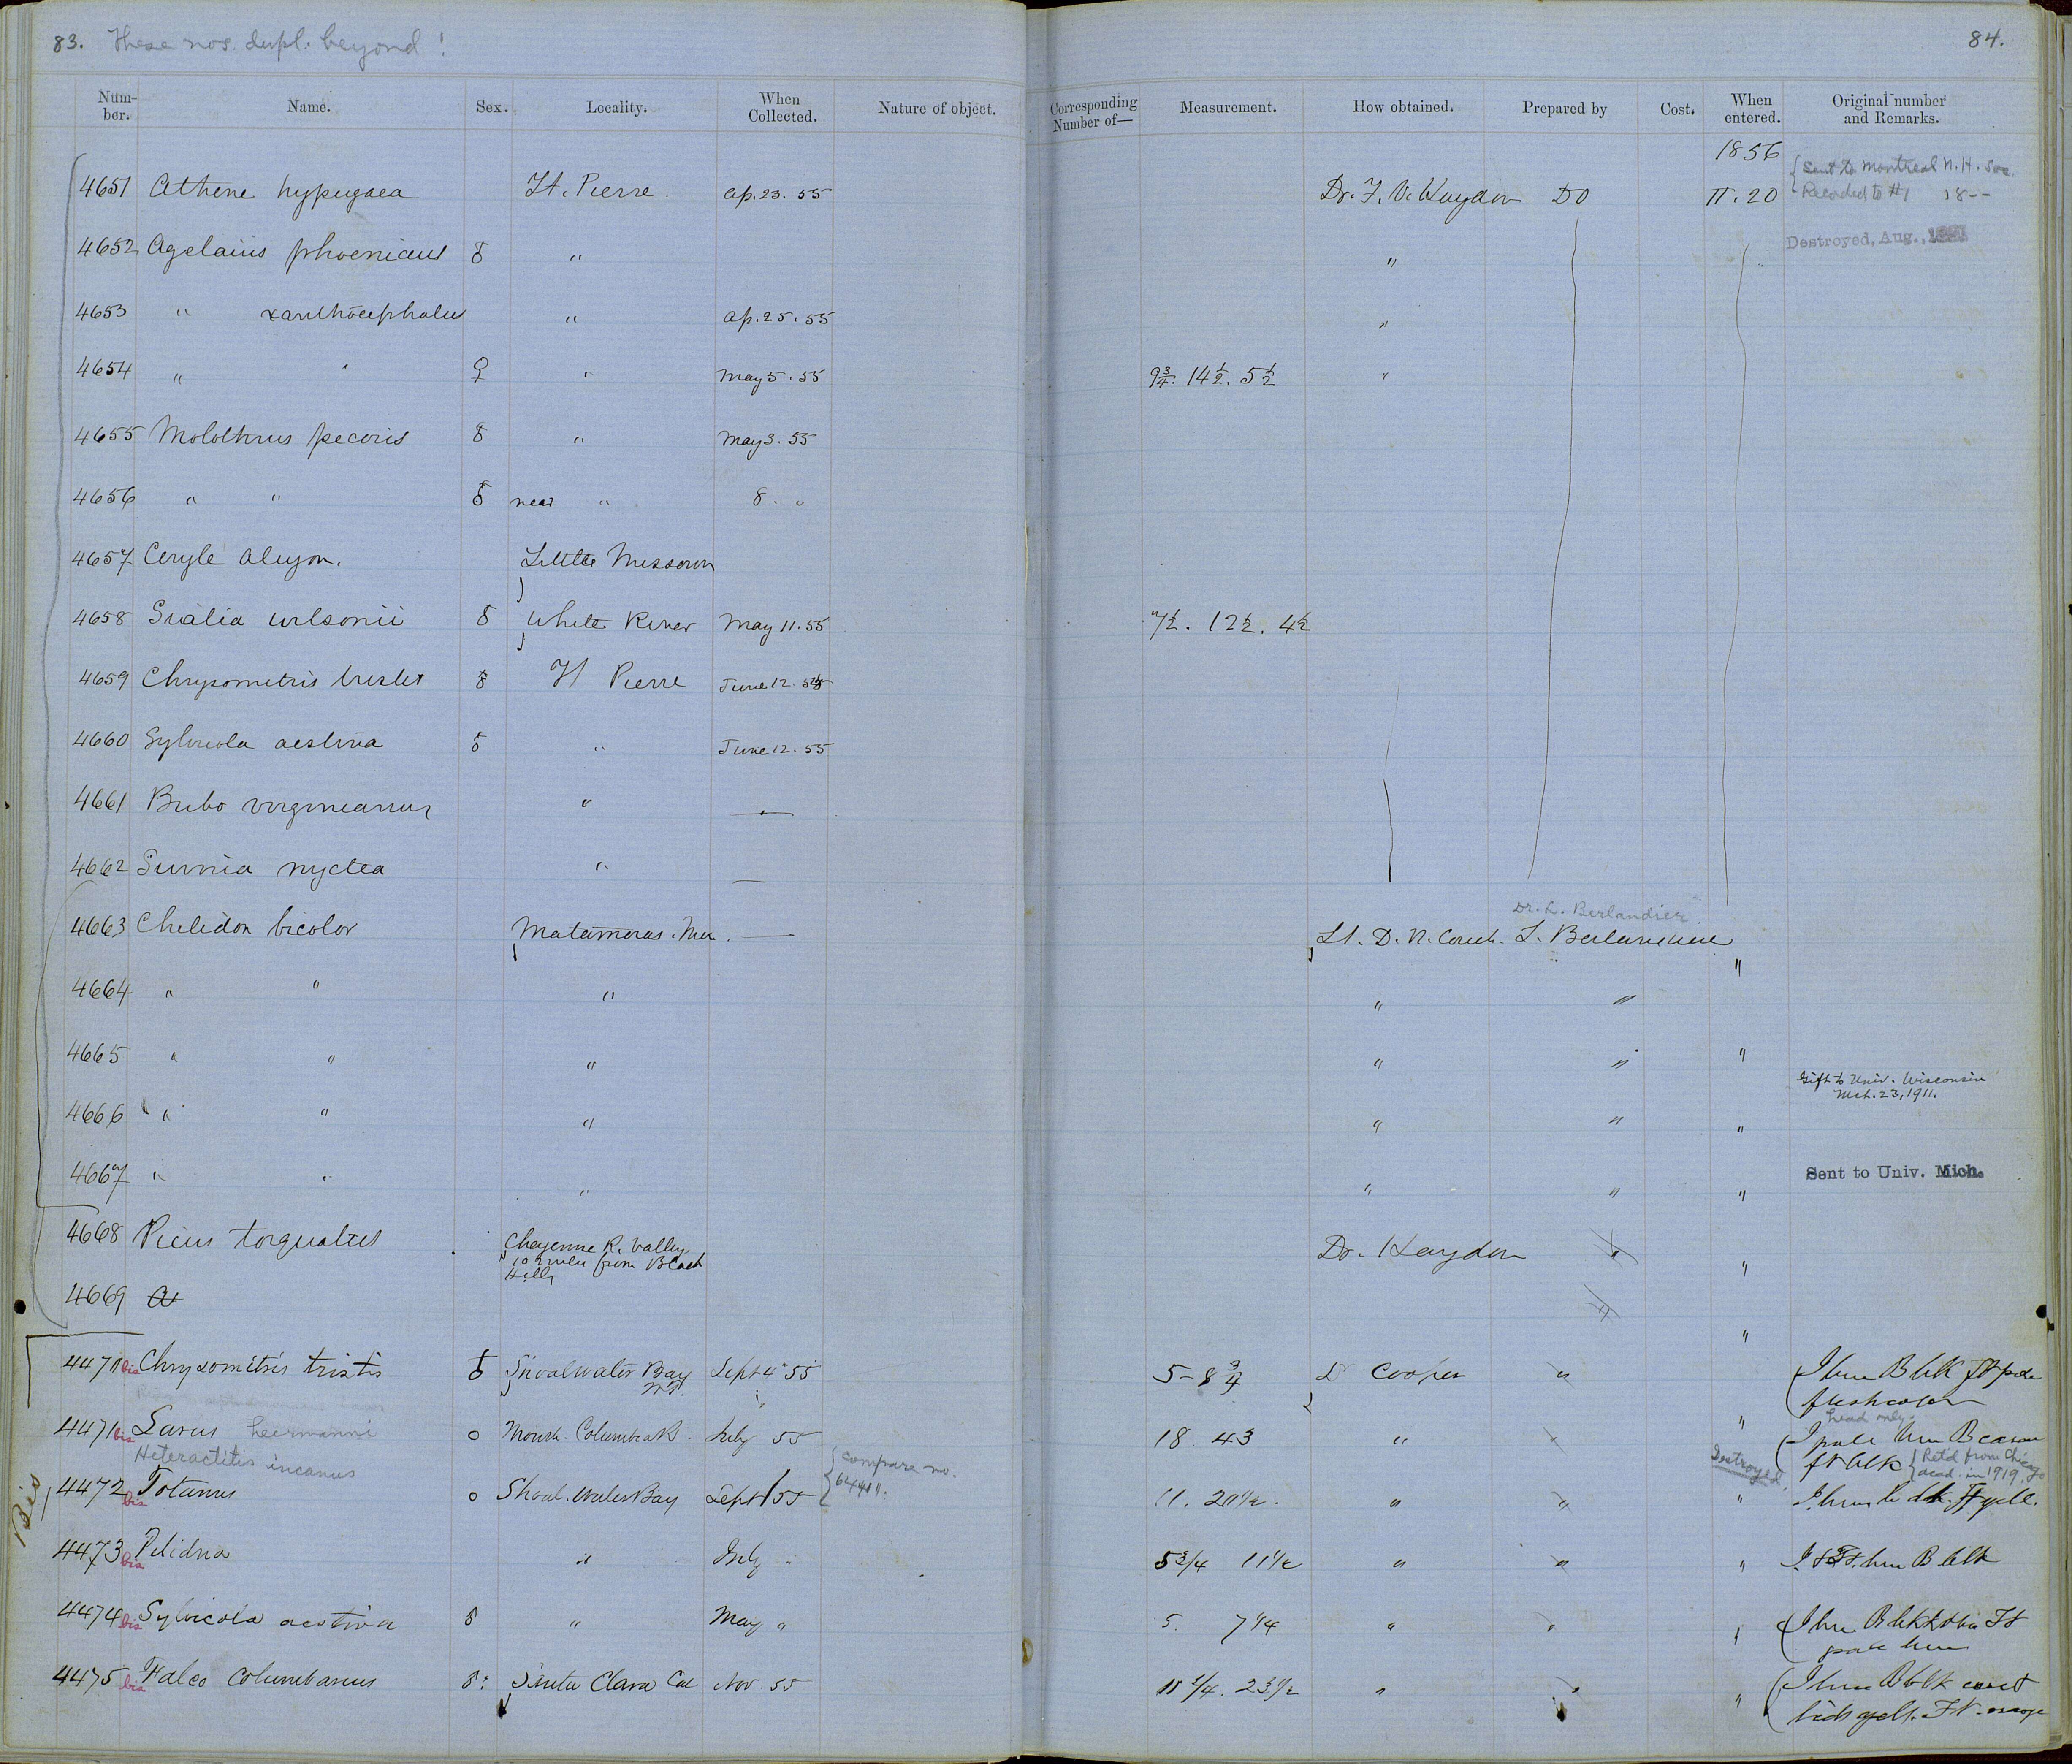 83. These nos. dupl. beyond! 84.
Num-ber. Name. Sex. Locality. When Collected. Nature of object. Corresponding Number of— Measurement. How obtained. Prepared by Cost. When entered. Original number and Remarks.
1856
4651 Athene hypugaea Ft. Pierre. Ap. 23. 55 Dr. F. V. Hayden DO 11. 20 { Sent to Montreal N. H. Soc.
Recorded to #1 18--
4652 Agelaius phoeniceus ♂ " " Destroyed, Aug.,
4653 " xanthocephalus " Ap. 25. 55 "
4654 " " ♀ " May 5. 55 9¾. 14½. 5½ "
4655 Molothrus pecoris ♂ " May 3. 55
4656 " " ♂ near " 8 "
4657 Ceryle alcyon. Little Missouri
4658 Sialia wilsonii ♂ White River May 11. 55 7½. 12½. 4½
4659 Chrysometris tristis ♂ Ft Pierre June 12. 55
4660 Sylvicola aestiva ♂ " June 12. 55
4661 Bubo virginianus " —
4662 Surnia nyctea " —
Dr. L. Berlandier
4663 Chelidon bicolor Matamoras. Mex. — Lt. D. N. Couch. L. Berlandier "
4664 " " " " "
4665 " " " " " "
Gift to Univ. Wisconsin
Mch. 23, 1911.
4666 " " " " " "
4667 " " " " " " Sent to Univ. Mich.
4668 Picus torquatus Cheyenne R. Valley Dr. Hayden "
10 miles from Black
Hills
4669 "
4470 bis Chrysomitris tristis ♂ Shoalwater Bay Sept 4 55 5 - 8¾ Dr Cooper " I brn B blk ft pale
W.T. flesh color
head only
4471 bis Larus heermanni o Mouth. Columbia R. July 55 18 43 " " I pale brn B
Heteractitis incanus { compare no. 64411. Destroyed ft blk { Ret'd from Chicago acad. in 1919.
Bis
4472 bis Totanus o Shoal. water Bay Sept 1 55 11. 20½. " " " I. brn b dk. Ft yell.
4473 bis Pelidna " July " 5¾ 11½ " " " I & Ft. brn B blk
4474 bis Sylvicola aestiva ♂ " May " 5. 7¼ " " " I brn B blk Ft
pale brn
4475 bis Falco columbarius ♂: Santa Clara Cal Nov 55 23½ " " " I brn B blk
lids yell. Ft. orange